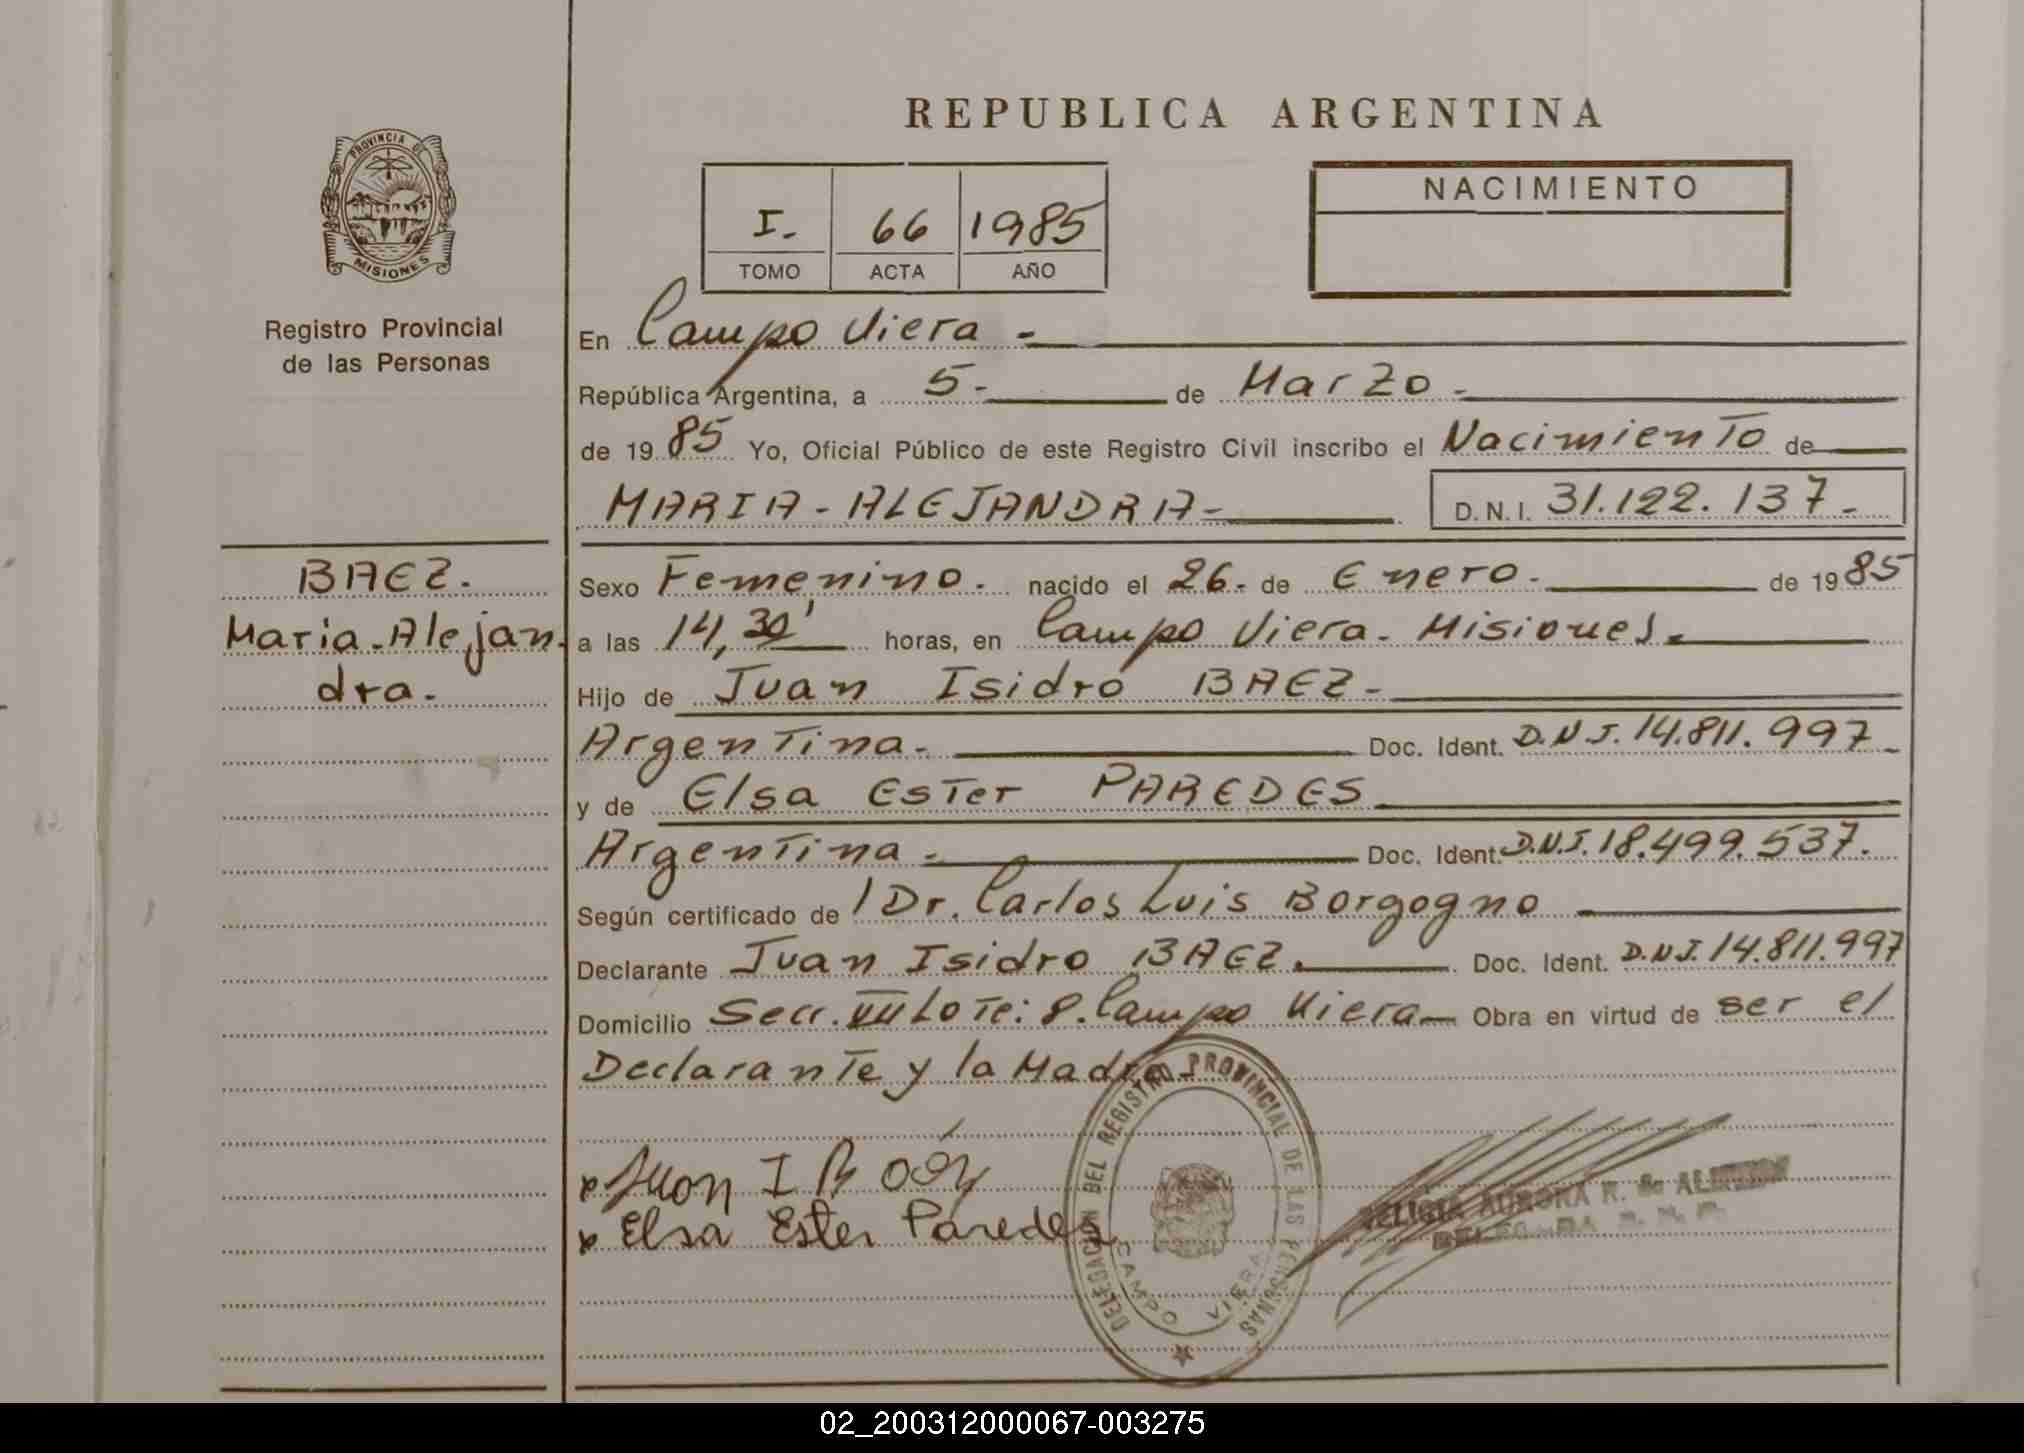 REPUBLICA ARGENTINA
PROVINCIA DE
MISIONES
Registro Provincial
de las Personas
I. 66 1985
TOMO ACTA AÑO
NACIMIENTO
En Campo Viera -
República Argentina, a 5- de Marzo -
de 1985 Yo, Oficial Público de este Registro Civil inscribo el Nacimiento de
MARIA - ALEJANDRA - D.N.I. 31.122.137-
BAEZ.
Maria-Alejan-
dra.
Sexo Femenino. nacido el 26- de Enero. de 1985
a las 14,30' horas, en Campo Viera - Misiones.
Hijo de Juan Isidro BAEZ -
Argentina - Doc. Ident. D.N.I. 14.811.997
y de Elsa Ester PAREDES
Argentina - Doc. Ident. D.N.I. 18.499.537.
Según certificado de Dr. Carlos Luis Borgogno
Declarante Juan Isidro BAEZ. Doc. Ident. D.N.I. 14.811.997
Domicilio Secc. VII Lote: 8. Campo Viera - Obra en virtud de ser el
Declarante y la Madre -
Juan I
Elsa Ester Paredes
DELEGACION DEL REGISTRO PROVINCIAL DE LAS PERSONAS
CAMPO VIERA
AURORA R. de
02_200312000067-003275